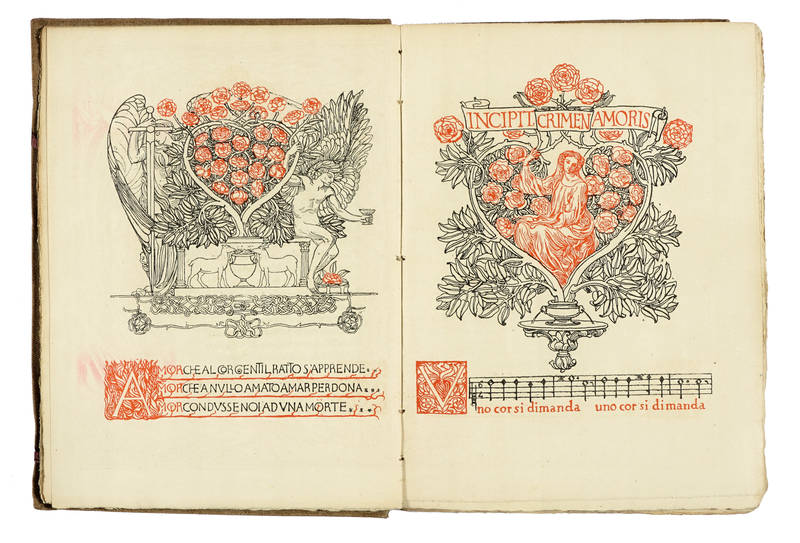 AMOR CHE AL COR GENTIL RATTO S'APPRENDE.
AMOR CHE A NVLLO AMATO AMAR PERDONA...
AMOR CONDVSSE NOI AD VNA MORTE....
INCIPIT CRIMEN AMORIS
Vno cor si dimanda uno cor si dimanda